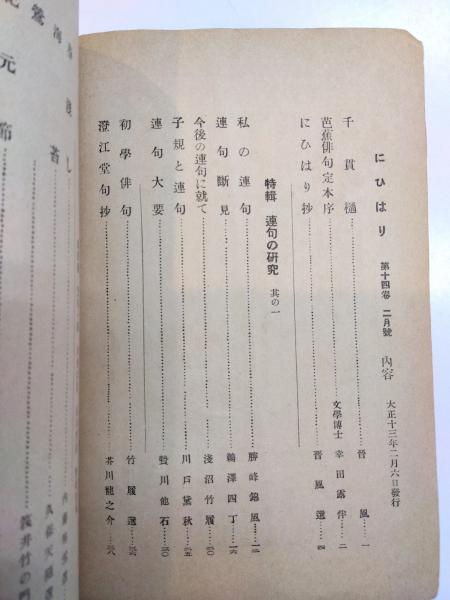 にひはり 第十四卷 二月號 內容 大正十三年二月六日發行
千貫樋 晉風 一
芭蕉俳句定本序 文學博士 幸田露伴 二
にひはり抄 晉風選 四
特輯 連句の硏究 其の一
私の連句 勝峰錦風 一二
連句斷見 鵜澤四丁 一六
今後の連句に就て 淺沼竹履 二〇
子規と連句 川戶黛秋 二五
連句大要 螢川他石 三〇
初學俳句 竹履選 三六
澄江堂句抄 芥川龍之介 三八